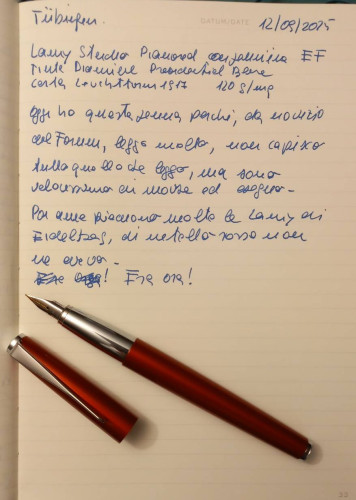 Tübingen. 12/09/2025
DATUM/DATE
Lamy Studio Piamond con pennino EF
Tinta Diamine Presidential Blue
carta Leuchtturm 1917 120 g/mq
Oggi ho questa penna perché, da novizio
del Forum, leggo molto, non capisco
tutto quello che leggo, ma sono
di morse ed
Poi a me piacciono molto le Lamy di
Eidelberg, di metallo rosso non
ne avevo.
! Era ora!